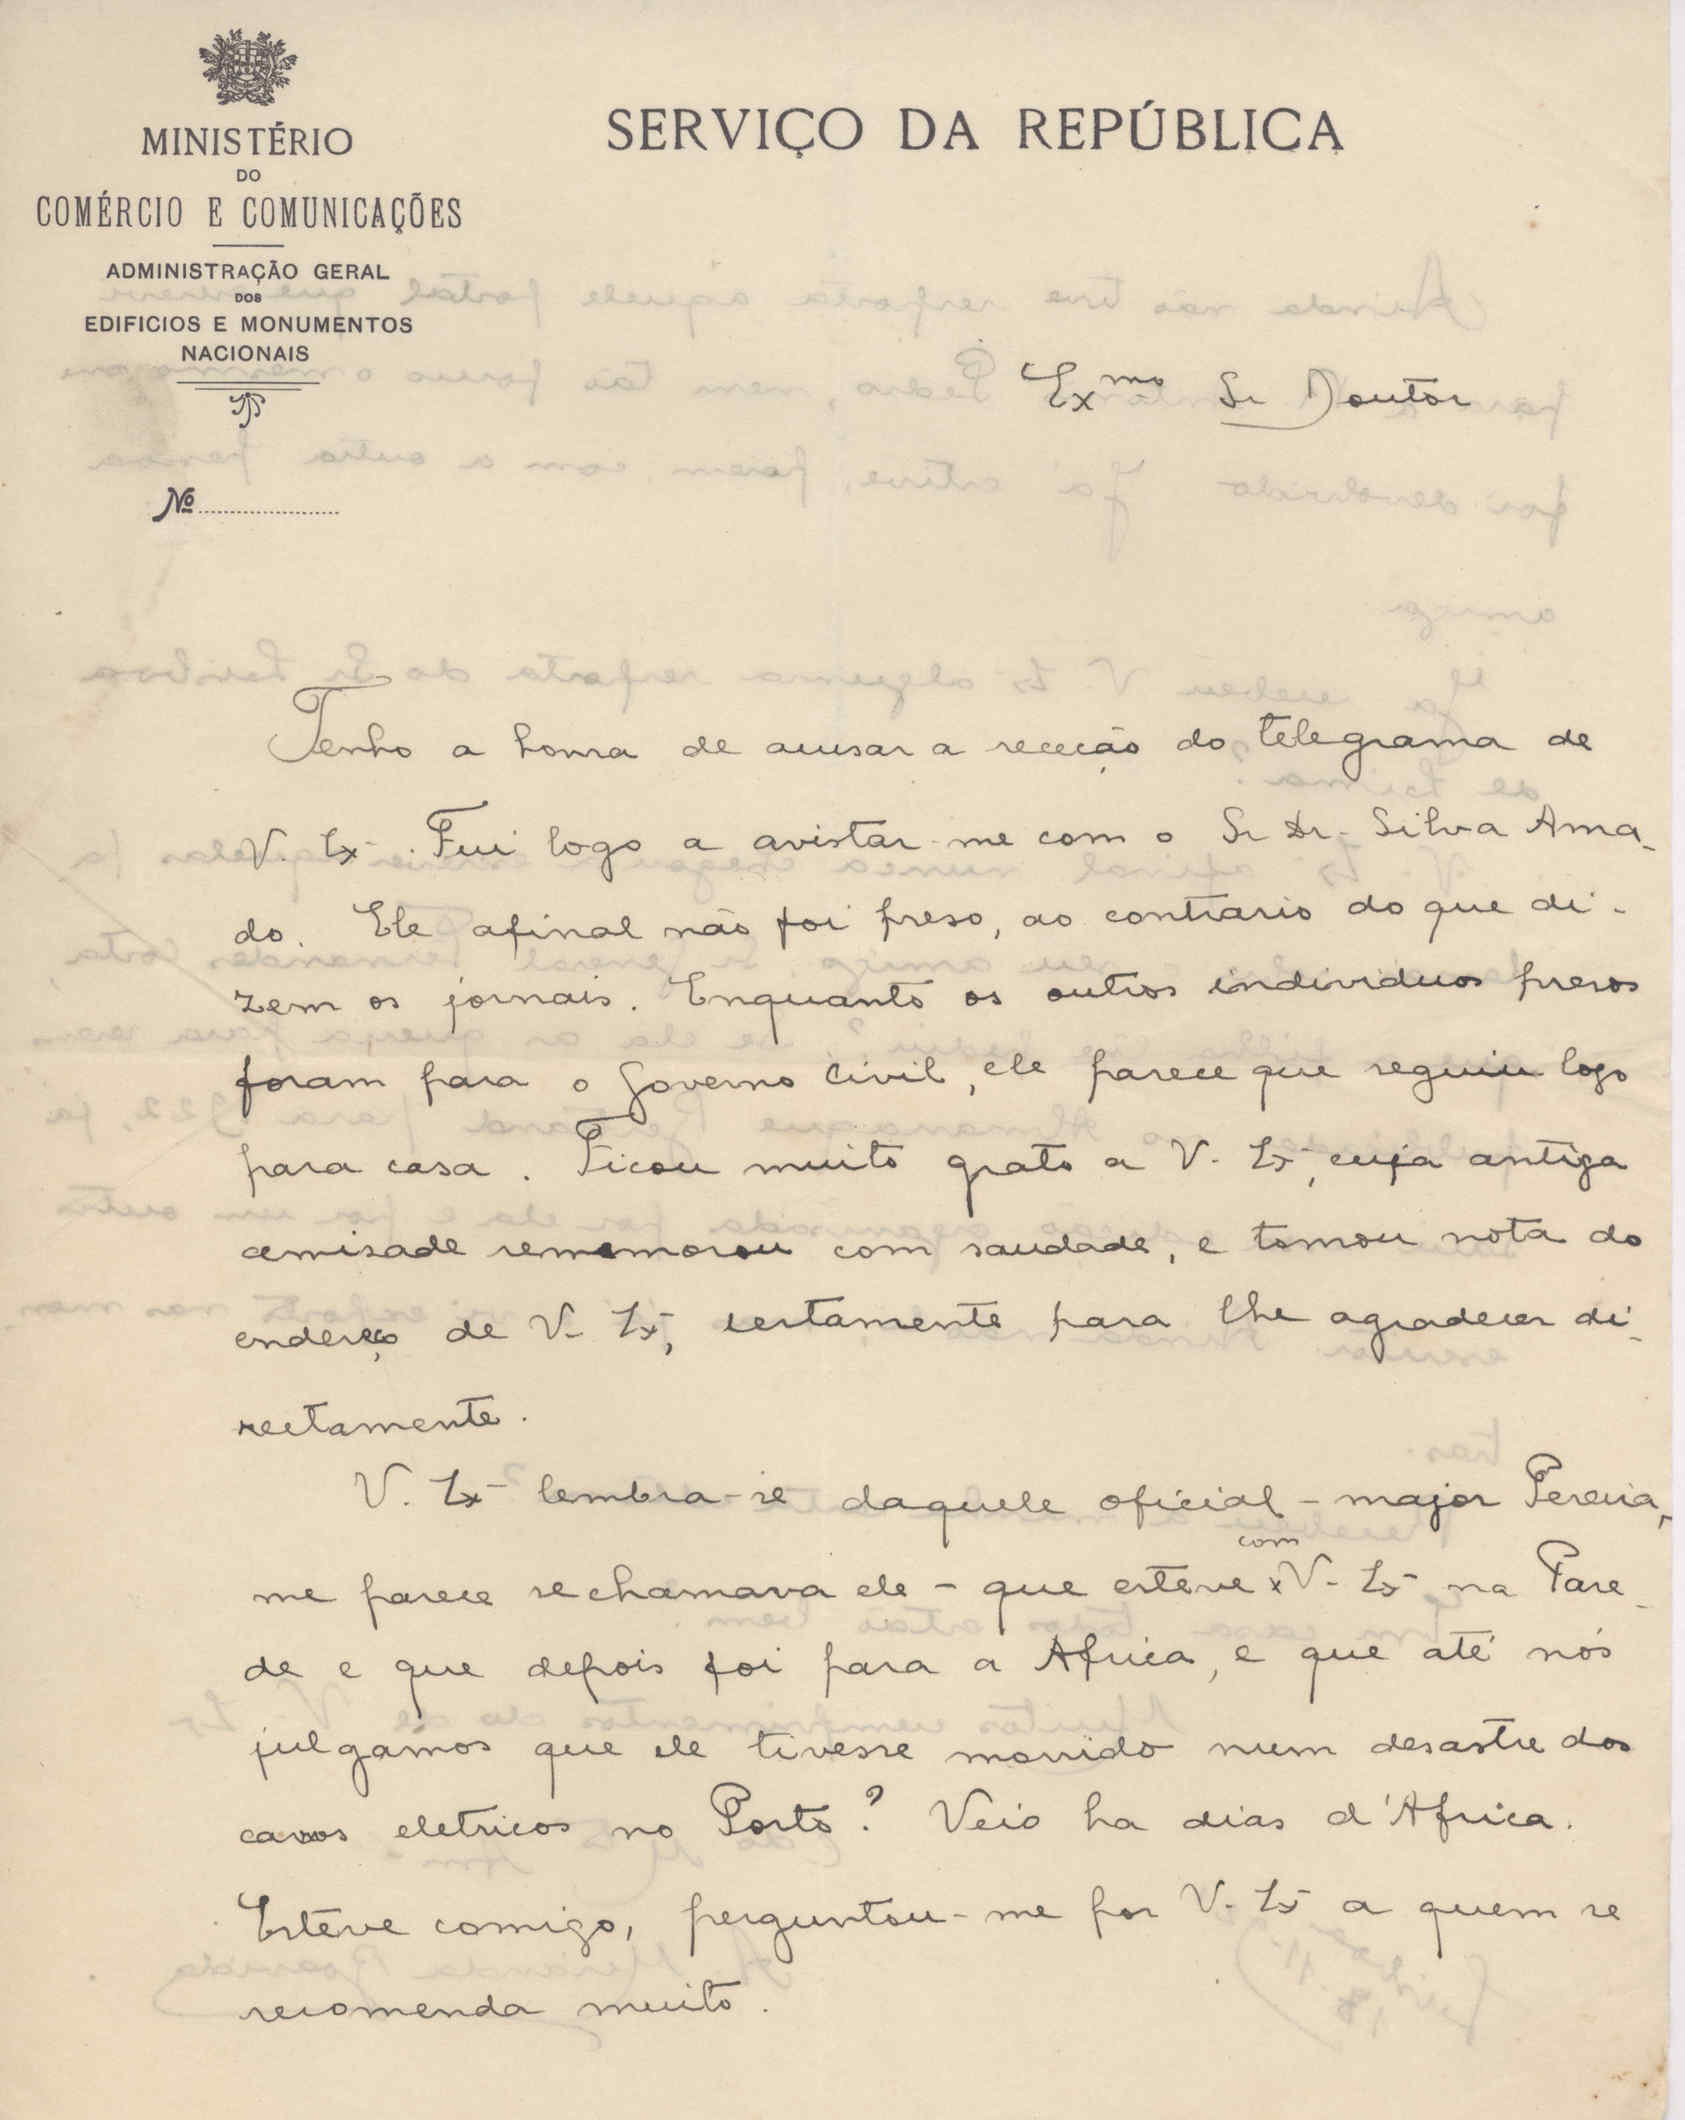 MINISTÉRIO
DO
COMÉRCIO E COMUNICAÇÕES
ADMINISTRAÇÃO GERAL
DOS
EDIFICIOS E MONUMENTOS
NACIONAIS
Nº
SERVIÇO DA REPÚBLICA
Exmo Sr Doutor
Tenho a honra de acusar a receção do telegrama de
V. Ex. Fui logo a avistar-me com o Sr Dr. Silva Ama-
do. Ele afinal não foi preso, ao contrario do que di-
zem os jornais. Enquanto os outros individuos presos
foram para o Governo Civil, ele parece que seguiu logo
para casa. Ficou muito grato a V. Ex, cuja antiga
amisade rememorou com saudade, e tomou nota do
endereço de V. Ex, certamente para lhe agradecer di-
rectamente.
V. Ex lembra-se daquele oficial - major Pereira,
me parece se chamava ele - que esteve com V. Ex na Pare-
de e que depois foi para a Africa, e que até nós
julgamos que ele tivesse morrido num desastre dos
carros eletricos no Porto? Veio ha dias d'Africa.
Esteve comigo, perguntou-me por V. Ex a quem se
recomenda muito.